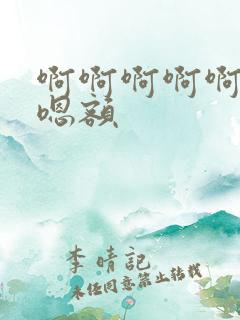 啊啊啊啊啊
嗯额
李晴記
未经同意禁止转载